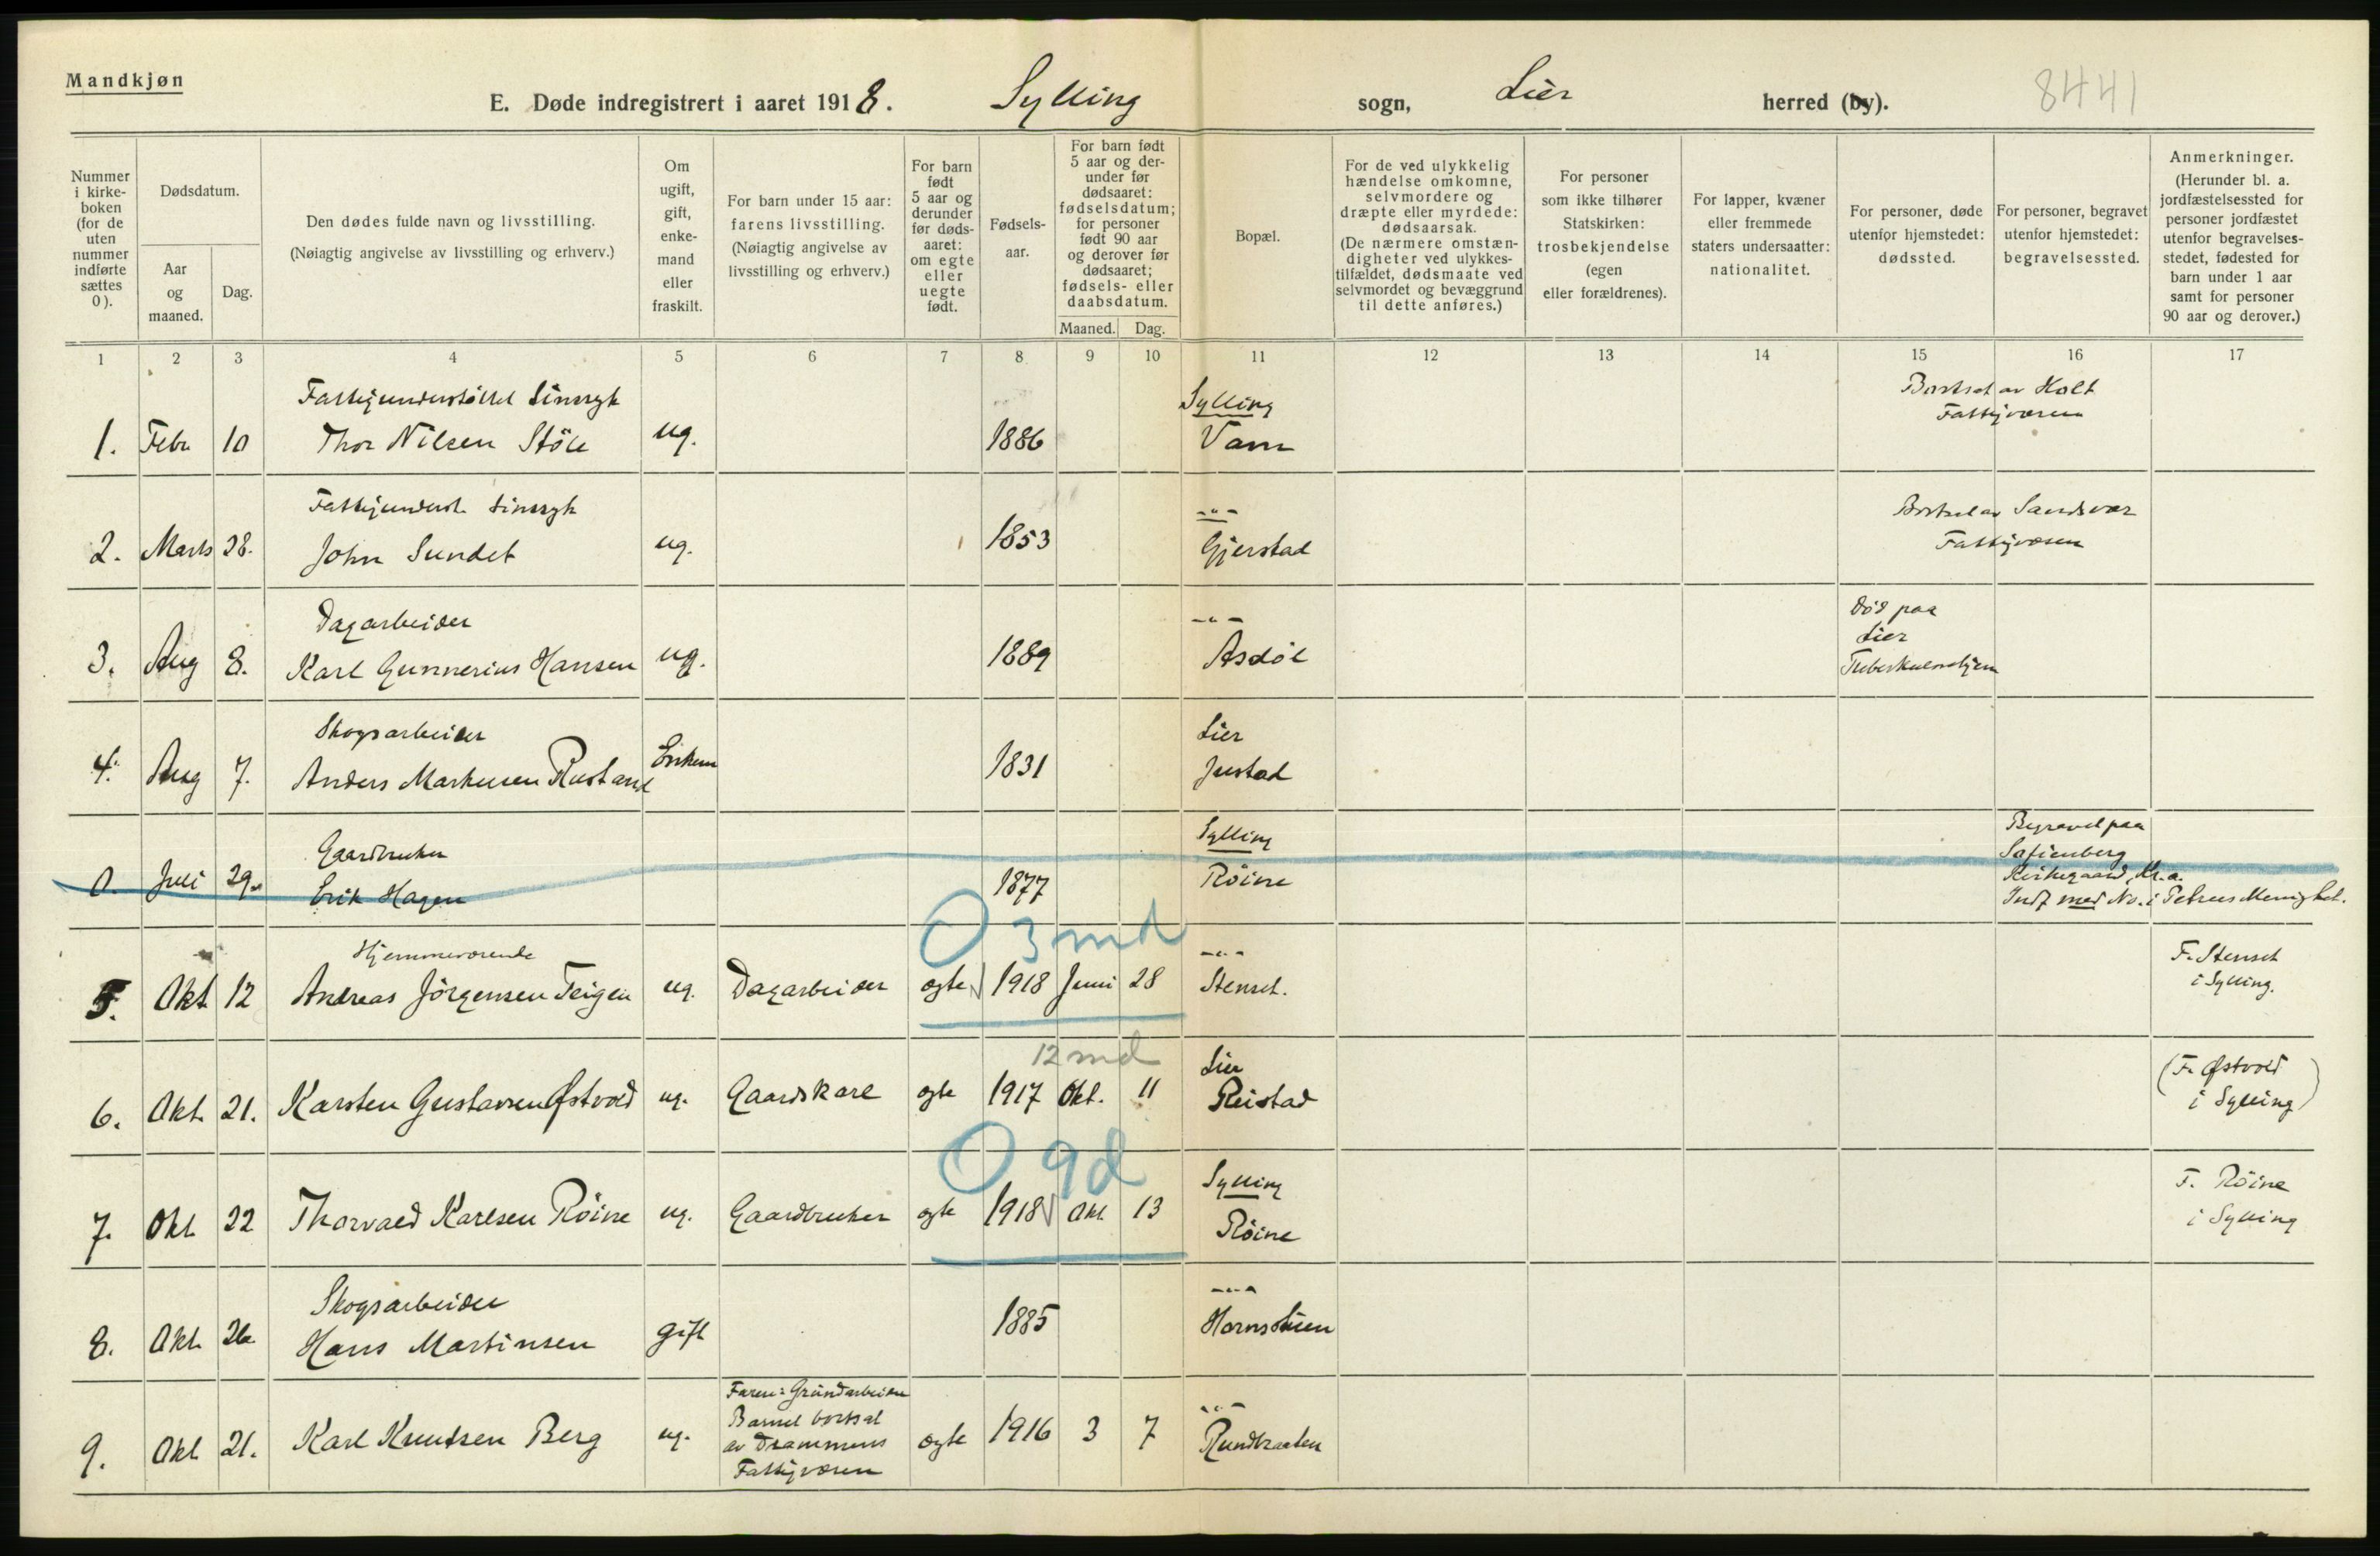 Mandkjøn
E. Døde indregistrert i aaret 1918. Sylling sogn, Lier herred (by). 8441
Nummer i kirke-boken (for de uten nummer indførte sættes 0).
Dødsdatum.
Aar og maaned.
Dag.
Den dødes fulde navn og livsstilling.
(Nøiagtig angivelse av livsstilling og erhverv.)
Om ugift, gift, enke-mand eller fraskilt.
For barn under 15 aar: farens livsstilling.
(Nøiagtig angivelse av livsstilling og erhverv.)
For barn født 5 aar og derunder før døds-aaret: om egte eller uegte født.
Fødsels-aar.
For barn født 5 aar og der-under før dødsaaret: fødselsdatum; for personer født 90 aar og derover før dødsaaret; fødsels- eller daabsdatum.
Maaned. Dag.
Bopæl.
For de ved ulykkelig hændelse omkomne, selvmordere og dræpte eller myrdede: dødsaarsak.
(De nærmere omstæn-digheter ved ulykkes-tilfældet, dødsmaate ved selvmordet og bevæggrund til dette anføres.)
For personer som ikke tilhører Statskirken: trosbekjendelse (egen eller forældrenes).
For lapper, kvæner eller fremmede staters undersaatter: nationalitet.
For personer, døde utenfor hjemstedet: dødssted.
For personer, begravet utenfor hjemstedet: begravelsessted.
Anmerkninger.
(Herunder bl. a. jordfæstelsessted for personer jordfæstet utenfor begravelses-stedet, fødested for barn under 1 aar samt for personer 90 aar og derover.)
1 2 3 4 5 6 7 8 9 10 11 12 13 14 15 16 17
Fattigunderstøttet Sinssyk Sylling Bortsat av Holt
1. Febr 10 Thor Nilsen Støle ug. 1886 Vam Fattigvæsen
Fattigunderst. Sinssyk -"- Bortsat av Sandsvær
2. Marts 28. John Sundet ug. 1853 Gjerstad Fattigvæsen
Dagarbeider -"- Død paa
3. Aug 8. Karl Gunnerius Hansen ug. 1889 Asdøl Lier
Tuberkulosehjem
Skogsarbeider Lier
4. Aug 7. Anders Markusen Rustand Enkem 1831 Justad
Gaardbruker Sylling Begravet paa
Sofienberg
0. Juli 29. Erik Hagen 1877 Røine Kirkegaard, Kr.a.
Indf med No. i Petrus Menighet.
O 3 md
Hjemmeværende -"- F. Stenset
5. Okt 12 Andreas Jörgensen Teigen ug. Dagarbeider egte 1918 Juni 28 Stenset. i Sylling.
12 md
Lier (F. Østvold
6. Okt. 21. Karsten Gustavsen Østvold ug. Gaardskarl egte 1917 Okt. 11 Reistad i Sylling)
O 9d
Sylling F. Röine
7. Okt 22 Thorvald Karlsen Röine ug. Gaardbruker egte 1918 Okt. 13 Röine i Sylling
Skogsarbeider -"-
8. Okt. 26 Hans Martinsen gift 1885 Hornslien
Faren: Grundarbeider -"-
Barnet bortsat
9. Okt 21. Karl Knudsen Berg ug. av Drammens egte 1916 3 7 Rundbraaten
Fattigvæsen